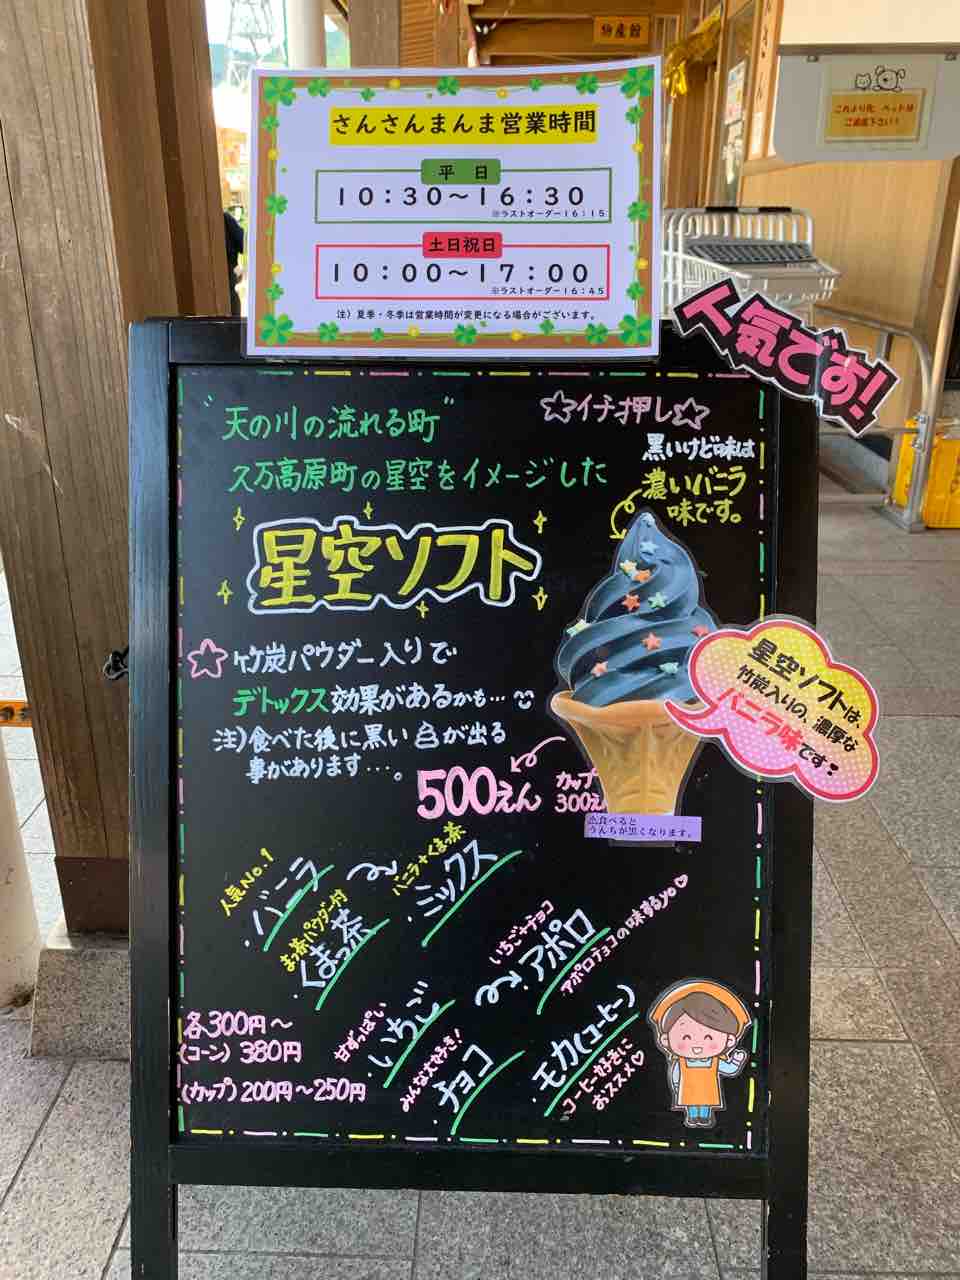 物産館
これより先、ペットは
ご遠慮下さい！
さんさんまんま営業時間
平 日
10：30～16：30
※ラストオーダー16：15
土日祝日
10：00～17：00
※ラストオーダー16：45
注）夏季・冬季は営業時間が変更になる場合がございます。
人気です！
"天の川の流れる町"
久万高原町の星空をイメージした
星空ソフト
☆イチ押し☆
黒いけど味は
濃いバニラ
味です。
☆竹炭パウダー入りで
デトックス効果があるかも…
注)食べた後に黒い💩が出る
事があります…。
500えん
カップ
300え
星空ソフトは、
竹炭入りの、濃厚な
バニラ味です！
⚠食べると
うんちが黒くなります。
人気No.1
・バニラ
まっ茶パウダー付
・くまっ茶
バニラ+くまっ茶
・ミックス
甘ずっぱい
・いちご
みんな大好き！
・チョコ
いちご+チョコ
・アポロ
アポロチョコの味するyo♡
・モカ(コーヒー)
コーヒー好きに
おススメ♡
各300円～
(コーン) 380円
(カップ) 200円～250円